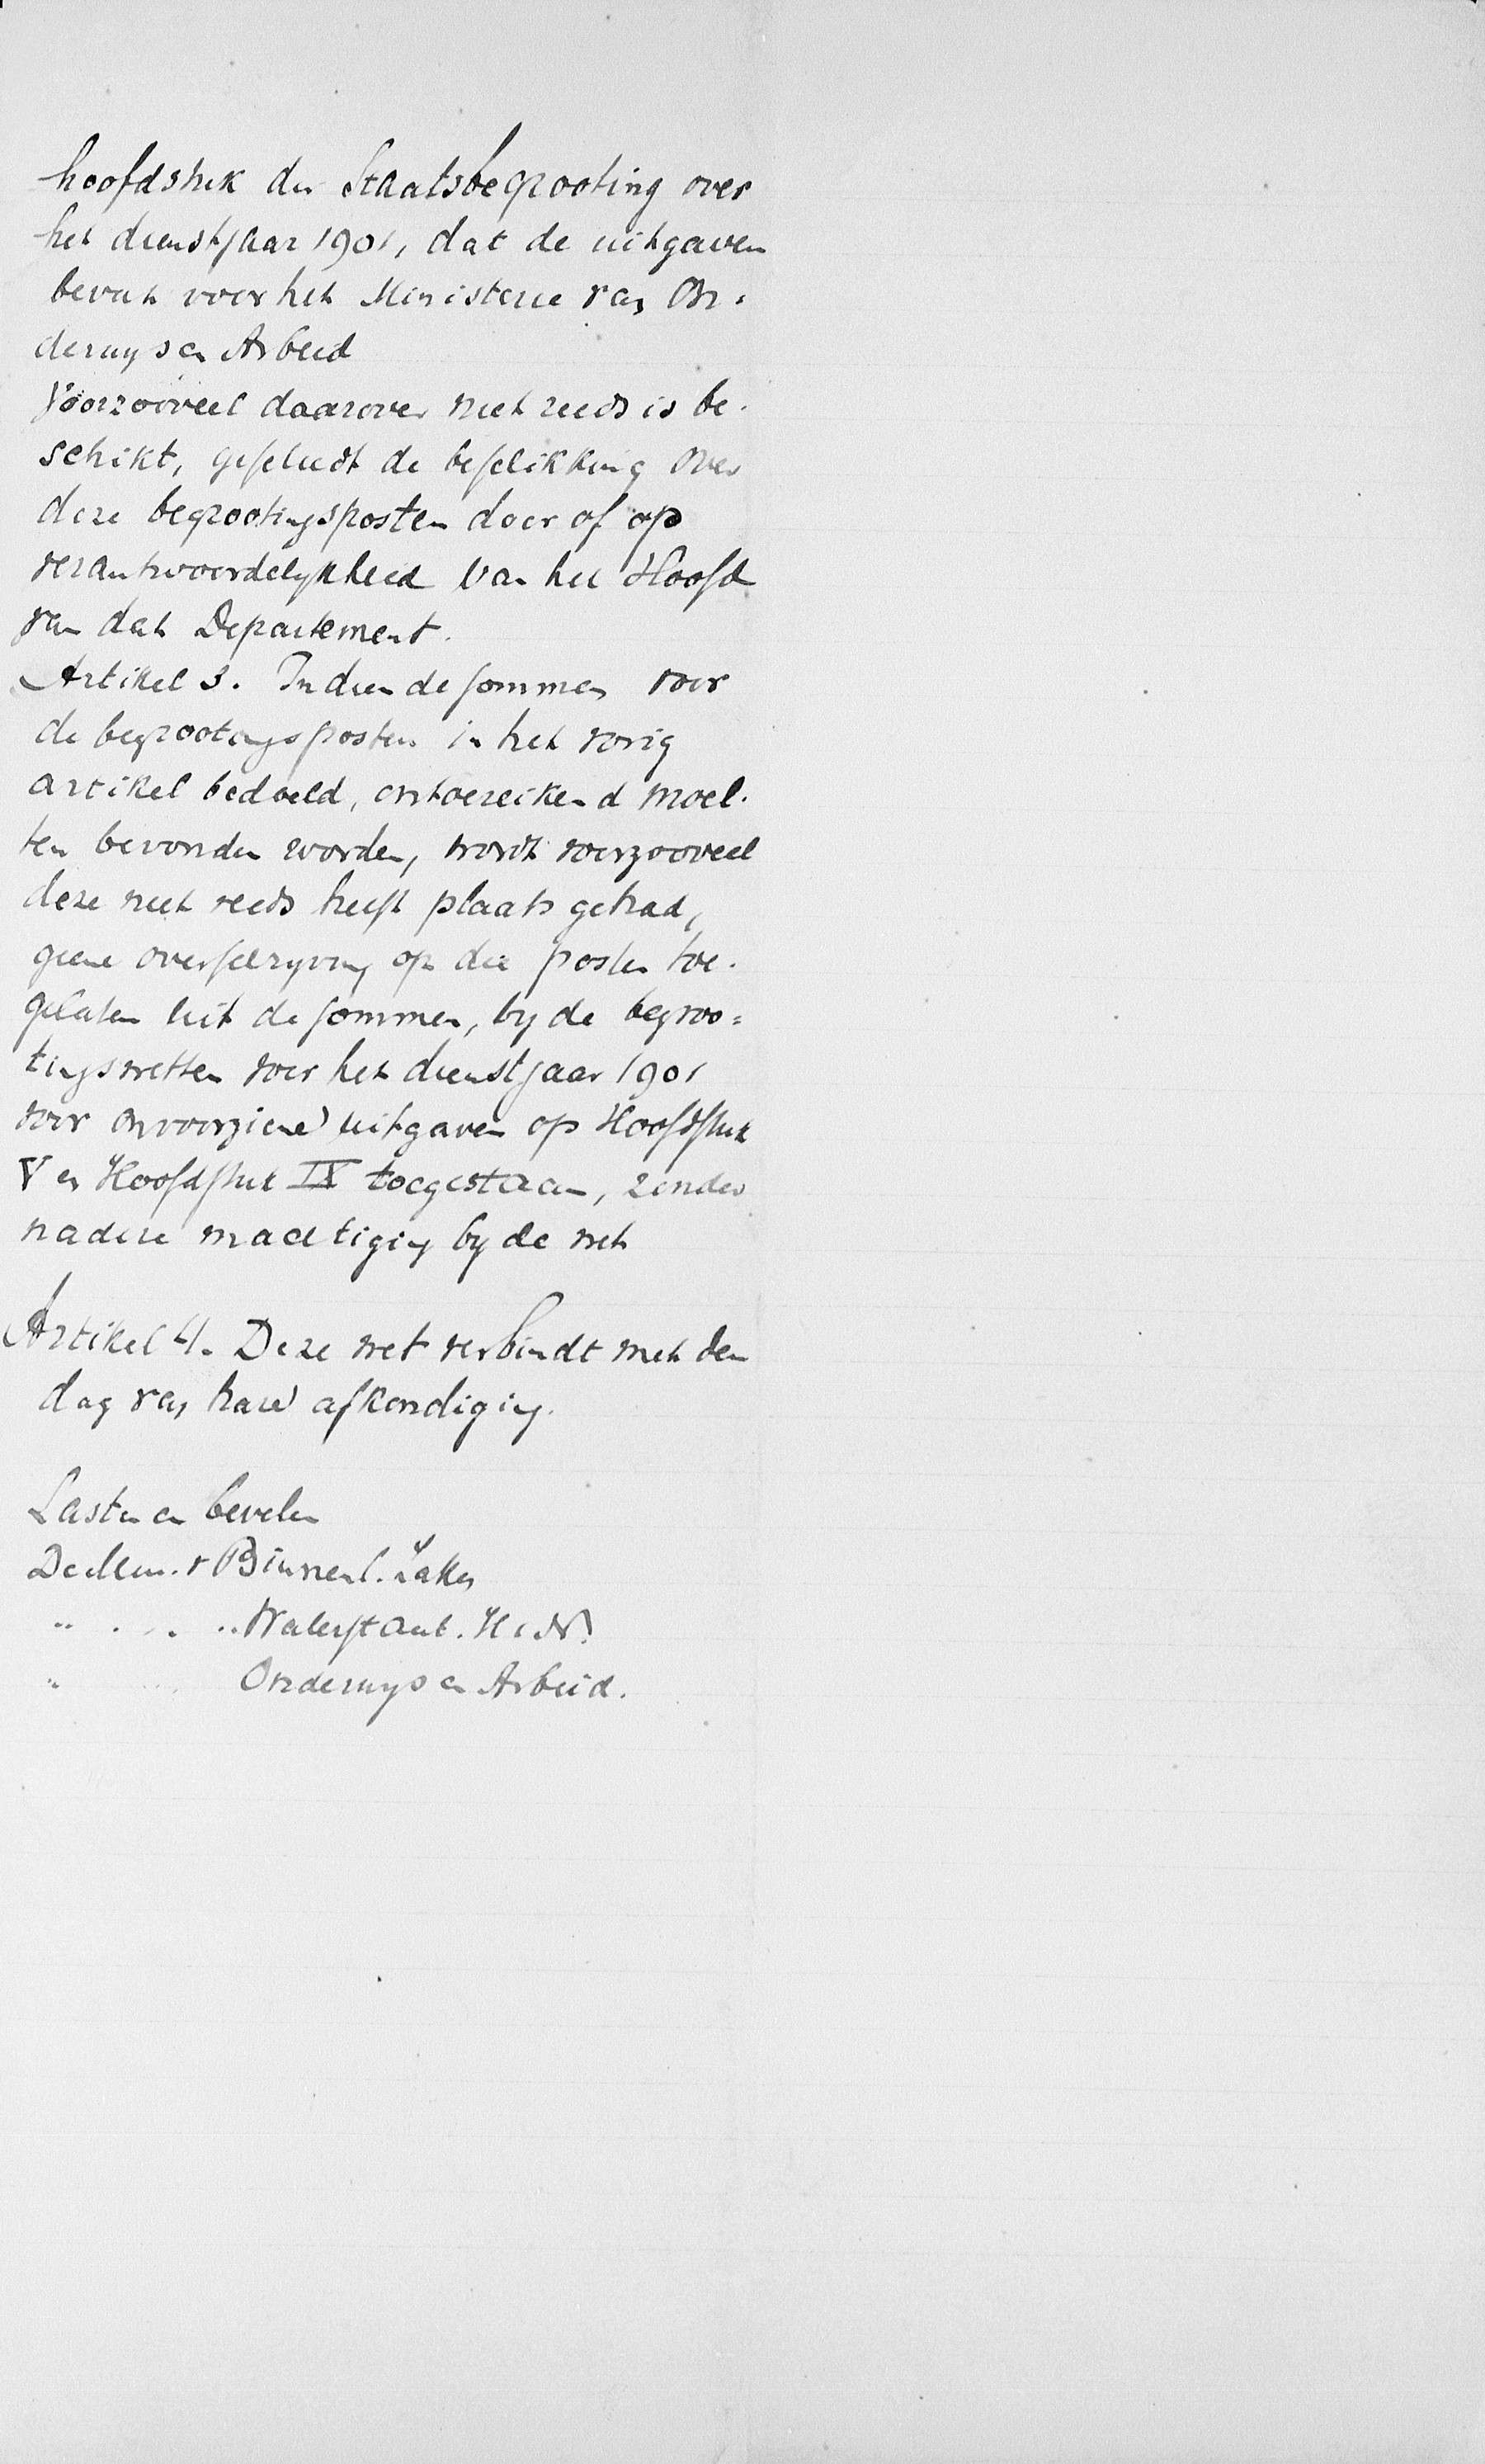 hoofdstuk der Staatsbegrooting over
het dienstjaar 1901, dat de uitgaven
bevat voor het Ministerie van On-
derwijs en Arbeid
Voorzooveel daarover niet reeds is be-
schikt, geschiedt de beschikking over
deze begrootingsposten door of op
verantwoordelijkheid van het Hoofd
van dat Departement.
Artikel 3. Indien de sommen voor
de begrootingsposten in het vorig
artikel bedoeld, ontoereikend moch-
ten bevonden worden, wordt voorzooveel
deze niet reeds heeft plaats gehad,
geene overschrijving op die posten toe-
gelaten uit de sommen, bij de begroo=
tingswetten voor het dienstjaar 1901
voor onvoorziene uitgaven op Hoofdstuk
V en Hoofdstuk IX toegestaan, zonder
nadere machtiging bij de wet
Artikel 4. Deze wet verbindt met den
dag van hare afkondiging.
Lasten en bevelen
De Min. v Binnenl. Zaken
" . . . " Waterstaat. H. N.
" Onderwijs en Arbeid.